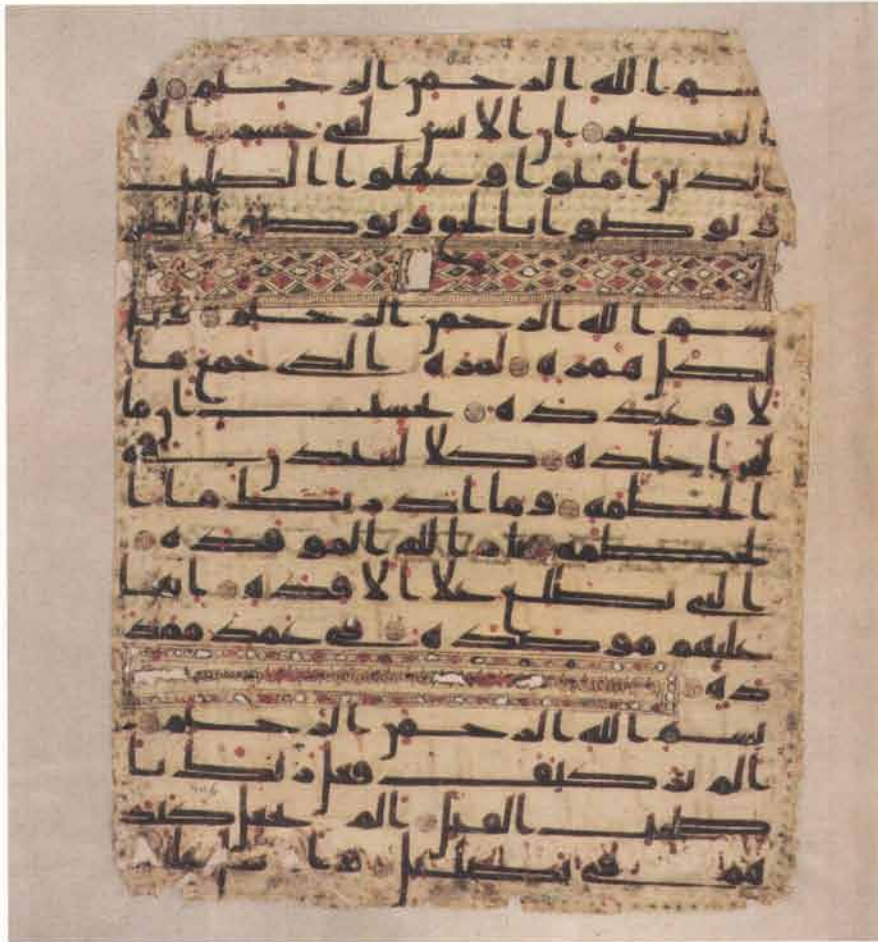 بسم الله الرحمن الرحيم و
العصر ان الانسن لفى خسر الا
الذين امنوا وعملوا الصلحت
و توصوا بالحق وتوصوا بالصبر
بسم الله الرحمن الرحيم ويل
لكل همزة لمزة الذى جمع ما
لا وعدده يحسب ان ما
له اخلده كلا لينبذن فى
الحطمة وما ادريك ما ا
لحطمة نار الله الموقدة
التى تطلع على الافدة انها
عليهم موصدة فى عمد ممد
دة
بسم الله الرحمن الرحيم
الم تر كيف فعل ربك با
صحب الفيل الم يجعل كيد
هم فى تضليل وارسل عليـ